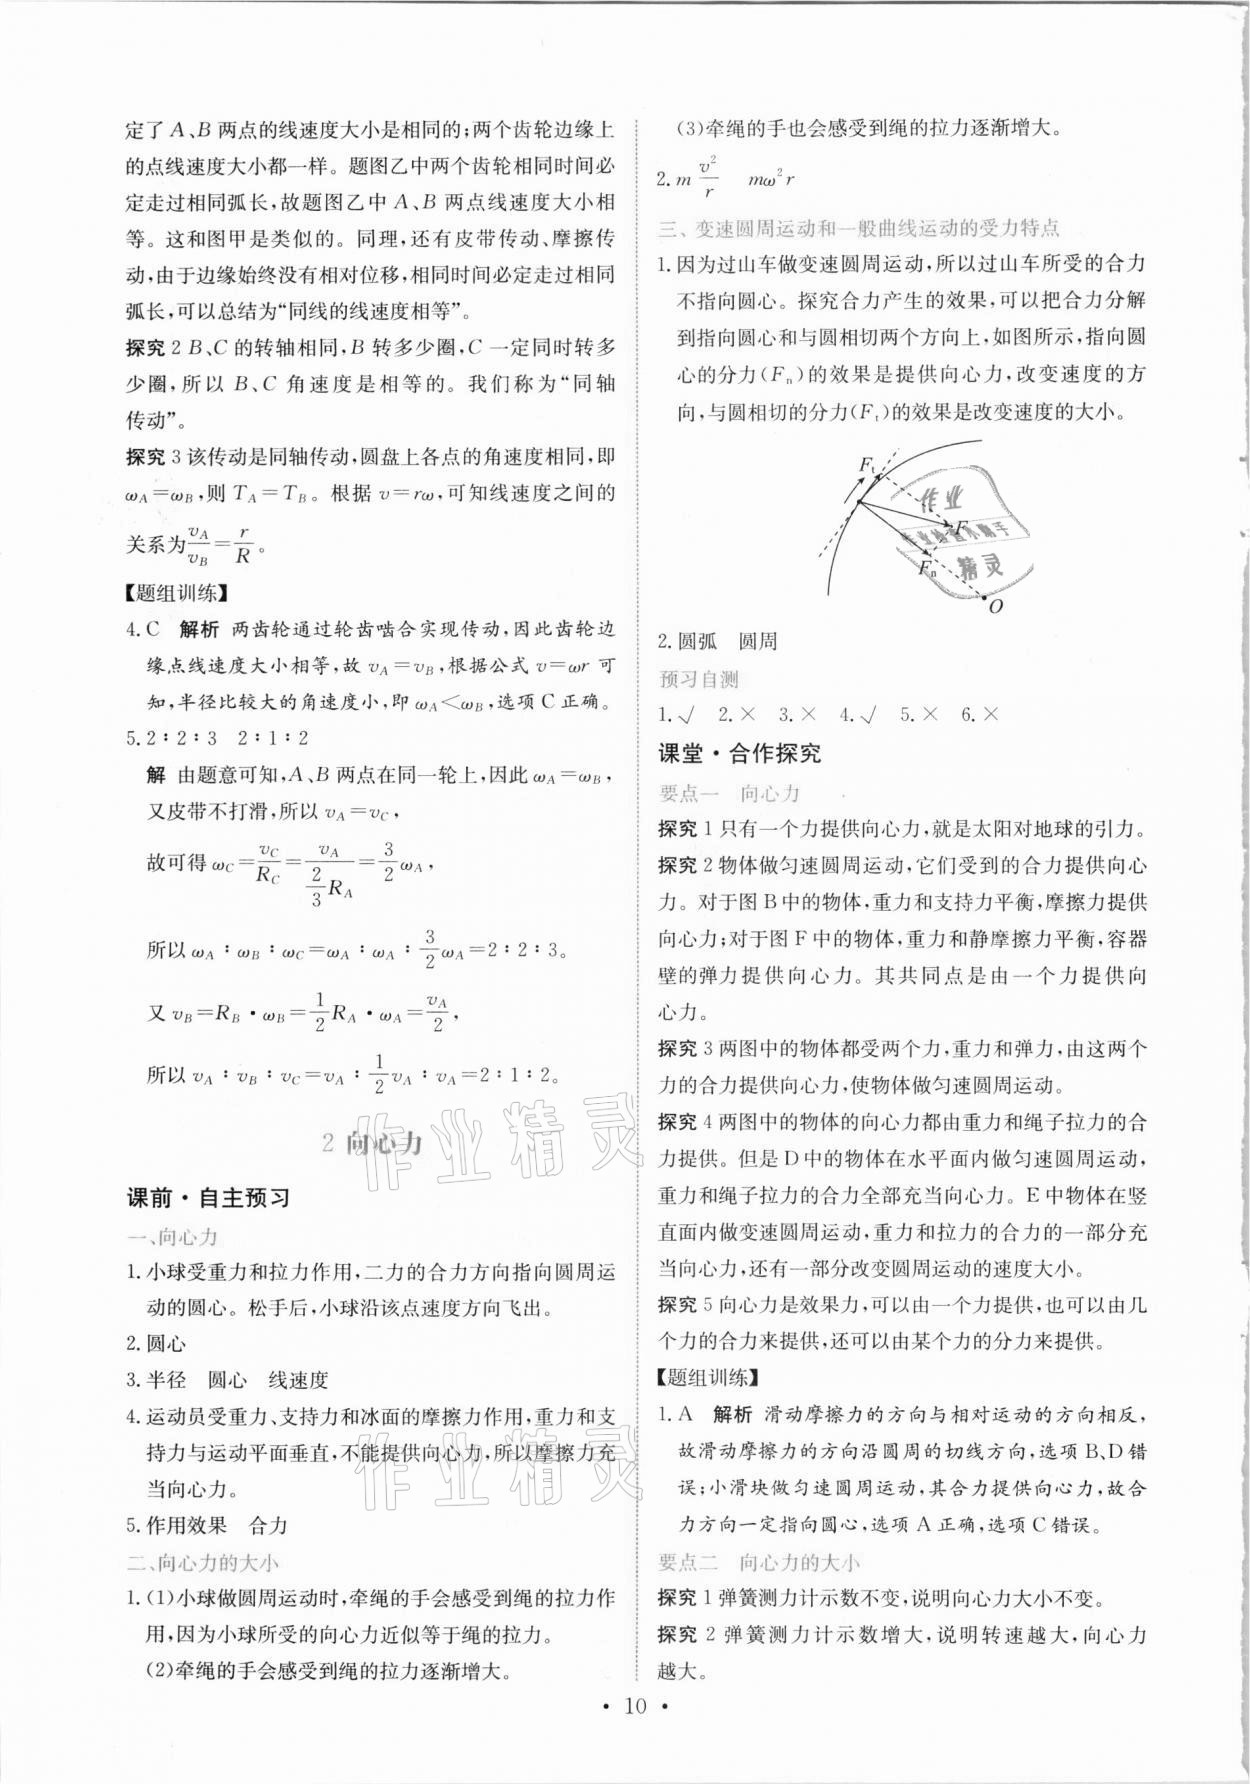 定了 A、B 两点的线速度大小是相同的;两个齿轮边缘上
的点线速度大小都一样。题图乙中两个齿轮相同时间必
定走过相同弧长,故题图乙中 A、B 两点线速度大小相
等。这和图甲是类似的。同理,还有皮带传动、摩擦传
动,由于边缘始终没有相对位移,相同时间必定走过相同
弧长,可以总结为“同线的线速度相等”。
探究 2 B、C 的转轴相同,B 转多少圈,C 一定同时转多
少圈,所以 B、C 角速度是相等的。我们称为“同轴
传动”。
探究 3 该传动是同轴传动,圆盘上各点的角速度相同,即
ω_A=ω_B,则 T_A=T_B。根据 v=rω,可知线速度之间的
关系为v_A/v_B=r/R。
【题组训练】
4. C 解析 两齿轮通过轮齿啮合实现传动,因此齿轮边
缘点线速度大小相等,故 v_A=v_B,根据公式 v=ωr 可
知,半径比较大的角速度小,即 ω_A<ω_B,选项 C 正确。
5. 2∶2∶3 2∶1∶2
解 由题意可知,A、B 两点在同一轮上,因此 ω_A=ω_B,
又皮带不打滑,所以 v_A=v_C,
故可得 ω_C=v_C/R_C=v_A/(2/3 R_A)=3/2 ω_A,
所以 ω_A∶ω_B∶ω_C=ω_A∶ω_A∶3/2 ω_A=2∶2∶3。
又 v_B=R_B·ω_B=1/2 R_A·ω_A=v_A/2,
所以 v_A∶v_B∶v_C=v_A∶1/2 v_A∶v_A=2∶1∶2。
2 向心力
课前·自主预习
一、向心力
1. 小球受重力和拉力作用,二力的合力方向指向圆周运
动的圆心。松手后,小球沿该点速度方向飞出。
2. 圆心
3. 半径 圆心 线速度
4. 运动员受重力、支持力和冰面的摩擦力作用,重力和支
持力与运动平面垂直,不能提供向心力,所以摩擦力充
当向心力。
5. 作用效果 合力
二、向心力的大小
1. (1)小球做圆周运动时,牵绳的手会感受到绳的拉力作
用,因为小球所受的向心力近似等于绳的拉力。
(2)牵绳的手会感受到绳的拉力逐渐增大。
(3)牵绳的手也会感受到绳的拉力逐渐增大。
2. m v²/r mω²r
三、变速圆周运动和一般曲线运动的受力特点
1. 因为过山车做变速圆周运动,所以过山车所受的合力
不指向圆心。探究合力产生的效果,可以把合力分解
到指向圆心和与圆相切两个方向上,如图所示,指向圆
心的分力(F_n)的效果是提供向心力,改变速度的方
向,与圆相切的分力(F_t)的效果是改变速度的大小。
F_t
F
F_n
O
作业
精灵
2. 圆弧 圆周
预习自测
1. √ 2. × 3. × 4. √ 5. × 6. ×
课堂·合作探究
要点一 向心力
探究 1 只有一个力提供向心力,就是太阳对地球的引力。
探究 2 物体做匀速圆周运动,它们受到的合力提供向心
力。对于图 B 中的物体,重力和支持力平衡,摩擦力提供
向心力;对于图 F 中的物体,重力和静摩擦力平衡,容器
壁的弹力提供向心力。其共同点是由一个力提供向
心力。
探究 3 两图中的物体都受两个力,重力和弹力,由这两个
力的合力提供向心力,使物体做匀速圆周运动。
探究 4 两图中的物体的向心力都由重力和绳子拉力的合
力提供。但是 D 中的物体在水平面内做匀速圆周运动,
重力和绳子拉力的合力全部充当向心力。E 中物体在竖
直面内做变速圆周运动,重力和拉力的合力的一部分充
当向心力,还有一部分改变圆周运动的速度大小。
探究 5 向心力是效果力,可以由一个力提供,也可以由几
个力的合力来提供,还可以由某个力的分力来提供。
【题组训练】
1. A 解析 滑动摩擦力的方向与相对运动的方向相反,
故滑动摩擦力的方向沿圆周的切线方向,选项 B、D 错
误;小滑块做匀速圆周运动,其合力提供向心力,故合
力方向一定指向圆心,选项 A 正确,选项 C 错误。
要点二 向心力的大小
探究 1 弹簧测力计示数不变,说明向心力大小不变。
探究 2 弹簧测力计示数增大,说明转速越大,向心力
越大。
作业精灵
作业精灵
· 10 ·